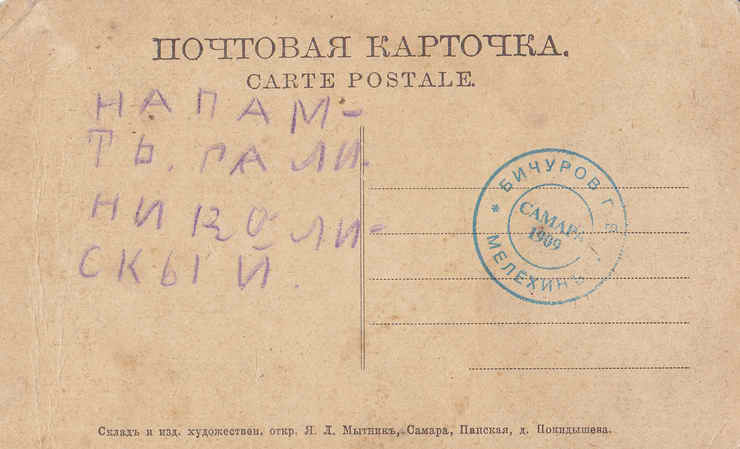 ПОЧТОВАЯ КАРТОЧКА.
CARTE POSTALE.
НАПАМ-
ТЬ. ГАЛИ.
НИКОЛИ-
СКЫЙ.
* БИЧУРОВ Г Е
МЕЛЕХИНЪ
САМАРА
1909
Складъ и изд. художествен. откр. Я. Л. Мытникъ, Самара, Панская, д. Покидышева.